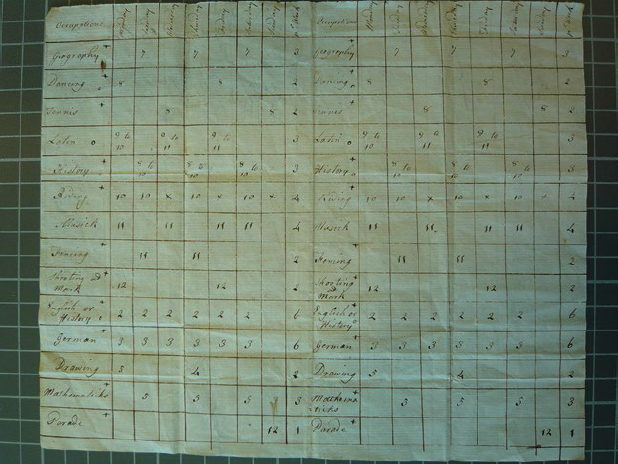 Occupations Monday Tuesday Wednesday Thursday Friday Saturday Sunday pr Week Occupations Monday Tuesday Wednesday Thursday Friday Saturday Sunday pr Week
Geography + 7 7 7 3 Geography + 7 7 7 3
Dancing o 8 8 2 Dancing o 8 8 2
Tennis + 8 8 2 Tennis + 8 8 2
Latin o 9 to 10 9 to 10 9 to 11 3 Latin o 9 to 10 9 to 11 9 to 11 3
History o 8 to 10 8 to 10 8 to 10 3 History o 8 to 10 8 to 10 8 to 10 3
Riding + 10 10 x 10 x 10 x 4 Riding + 10 10 x 10 x 10 x 4
Musick 11 11 11 11 4 Musick 11 11 11 11 4
Fencing + 11 11 2 Fencing + 11 11 2
Shooting at Mark + 12 12 2 Shooting at Mark + 12 12 2
English or History o 2 2 2 2 2 2 6 English or History o 2 2 2 2 2 2 6
German + 3 3 3 3 3 3 6 German + 3 3 3 3 3 3 6
Drawing 5 4 2 Drawing + 5 4 2
Mathematicks + 5 5 5 3 Mathema
ticks 5 5 5 3
Parade + 12 1 Parade + 12 1